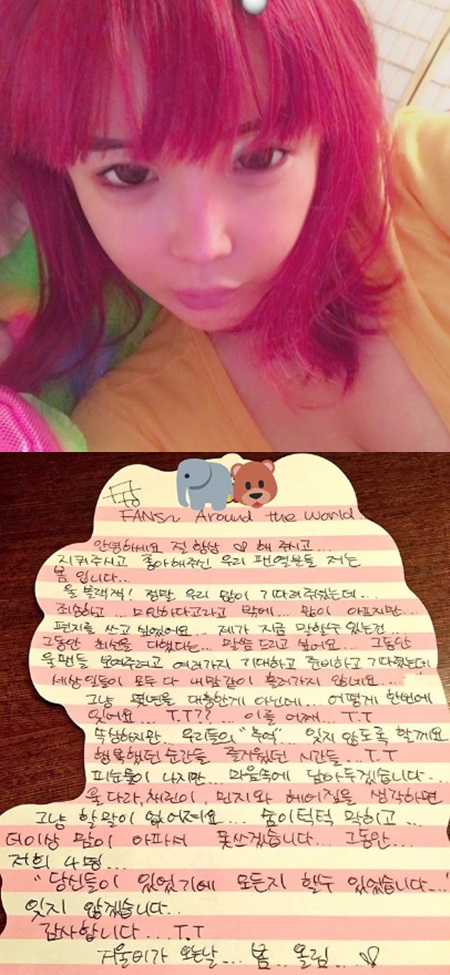 To
FANs~ Around the World
안녕하세요 절 항상 ♡ 해 주시고...
지켜주시고 좋아해주신 우리 팬 여러분들 저는
봄 입니다...
울 블랙잭! 정말 우리 많이 기다려줬었는데...
죄송하고... 미안하다고라고 밖에... 많이 아프지만...
편지를 쓰고 싶었어요... 제가 지금 말할수 있는건...
그동안 최선을 다했다는... 말씀 드리고 싶어요... 그동안
울 팬들 보여주려고 여러가지 기대하고 준비하고 기다렸는데
세상 일들이 모두 다 내맘 같이 흘러가지 않네요...
그냥 몇년을 대충한게 아닌데... 어떻게 한번에
잊어요... T.T?? ... 이를 어째... T.T
속상하지만... 우리들의 "추억"... 잊지 않도록 할께요
행복했던 순간들 즐거웠던 시간들... T.T
피눈물이 나지만... 마음속에 담아두겠습니다...
울 다라, 채린이, 민지와 헤어짐을 생각하면
그냥 할말이 없어져요... 숨이 턱턱 막히고...
더이상 맘이 아파서 못쓰겠습니다... 그동안...
저희 4명...
"당신들이 있었기에 모든지 할수 있었습니다..."
잊지 않겠습니다...
감사합니다... T.T
겨울비가 오는날... 봄 올림... ♡